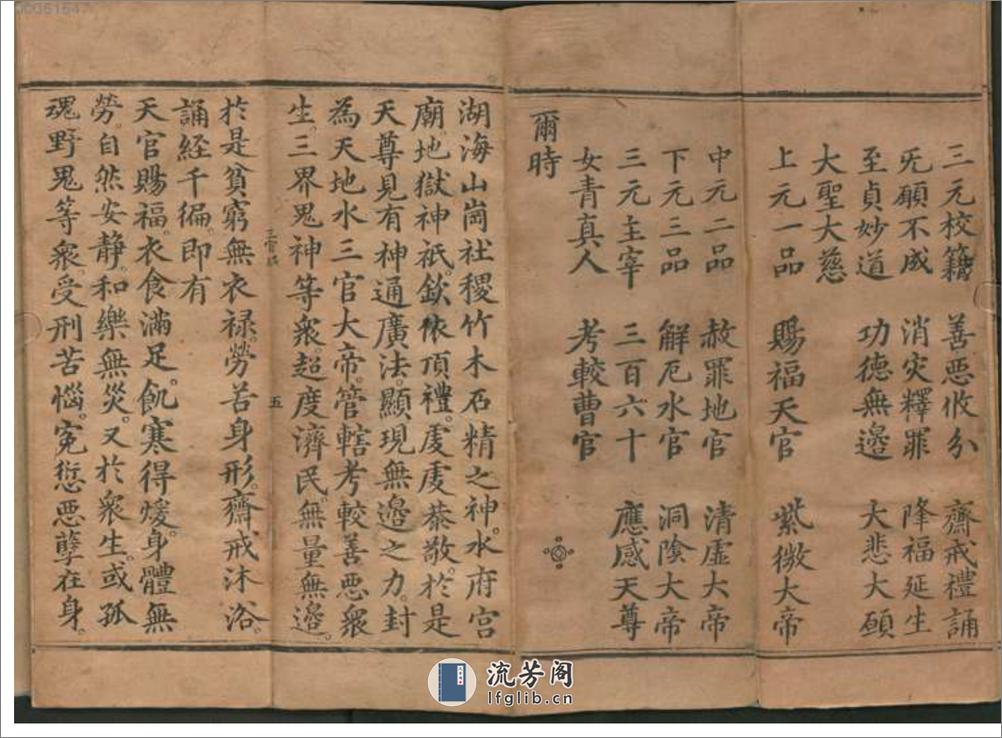 三元校籍 善惡攸分 齋戒禮誦
旡願不成 消灾釋罪 降福延生
至貞妙道 功德無邊
大聖大慈 大悲大願
上元一品 賜福天官 紫微大帝
中元二品 赦罪地官 清虛大帝
下元三品 解厄水官 洞陰大帝
三元主宰 三百六十 應感天尊
女青真人 考較曹官
爾時
湖海山崗社稷竹木石精之神。水府宮
廟。地獄神祇。欽依頂禮。虔虔恭敬。於是
天尊見有神通廣法。顯現無邊之力。封
為天地水三官大帝。管轄考較善惡眾
生。三界鬼神等衆。超度濟民。無量無邊。
三官經 五
於是貧窮無衣祿。勞苦身形。齋戒沐浴。
誦経千徧。即有
天官賜福。衣食滿足。飢寒得煖。身體無
勞。自然安静。和樂無災。又於衆生。或孤
魂野鬼等衆。受刑苦惱。寃愆惡孽在身。
00051547
流芳阁
lfglib.cn